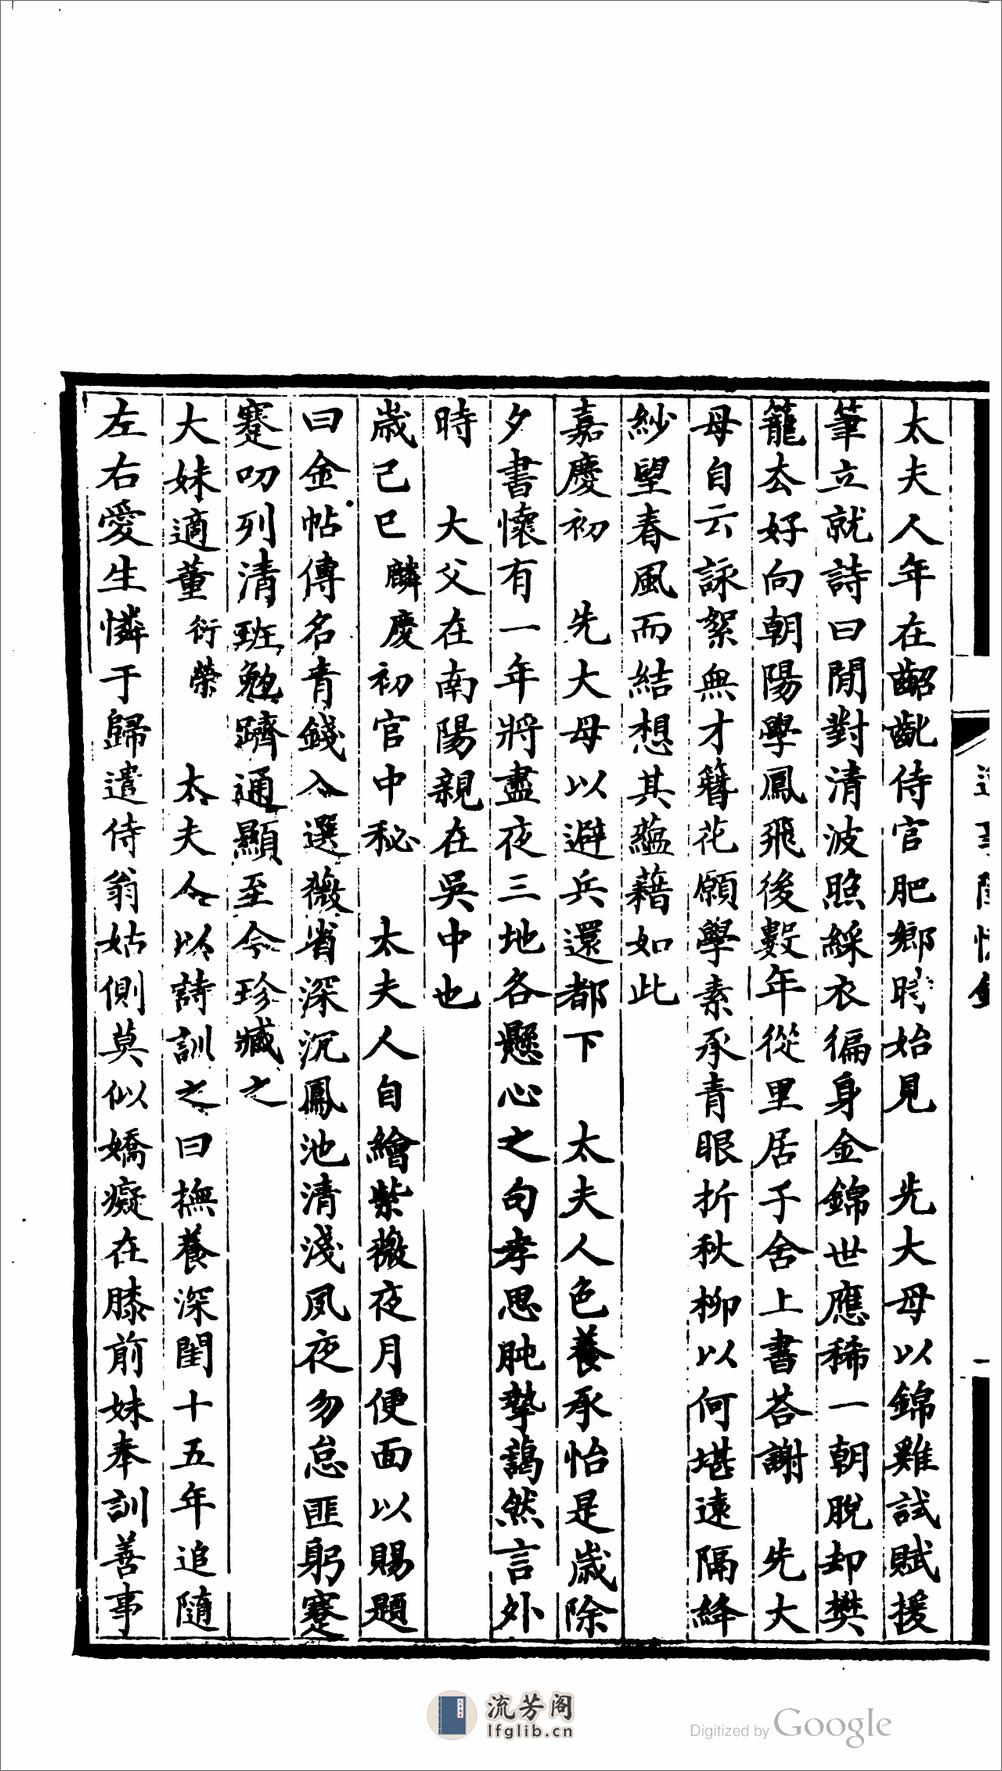 太夫人年在齠齔侍官肥鄉時始見　先大母以錦雞試賦援
筆立就詩曰閒對清波照綵衣徧身金錦世應稀一朝脫却樊
籠去好向朝陽學鳳飛後數年從里居子舍上書荅謝　先大
母自云詠絮無才簮花願學素承青眼折秋柳以何堪遠隔絳
紗望春風而結想其蘊藉如此
嘉慶初　先大母以避兵還都下　太夫人色養承怡是歲除
夕書懷有一年將盡夜三地各懸心之句孝思肫摯藹然言外
時　大父在南陽親在吳中也
歲己巳麟慶初官中秘　太夫人自繪紫薇夜月便面以賜題
曰金帖傳名青錢入選薇省深沉鳳池清淺夙夜勿怠匪躬蹇
蹇叨列清班勉躋通顯至今珍臧之
大妹適董衍榮　太夫人以詩訓之曰撫養深閨十五年追隨
左右愛生憐于歸遣侍翁姑側莫似嬌癡在膝前妹奉訓善事
流芳阁
lfglib.cn
Digitized by Google